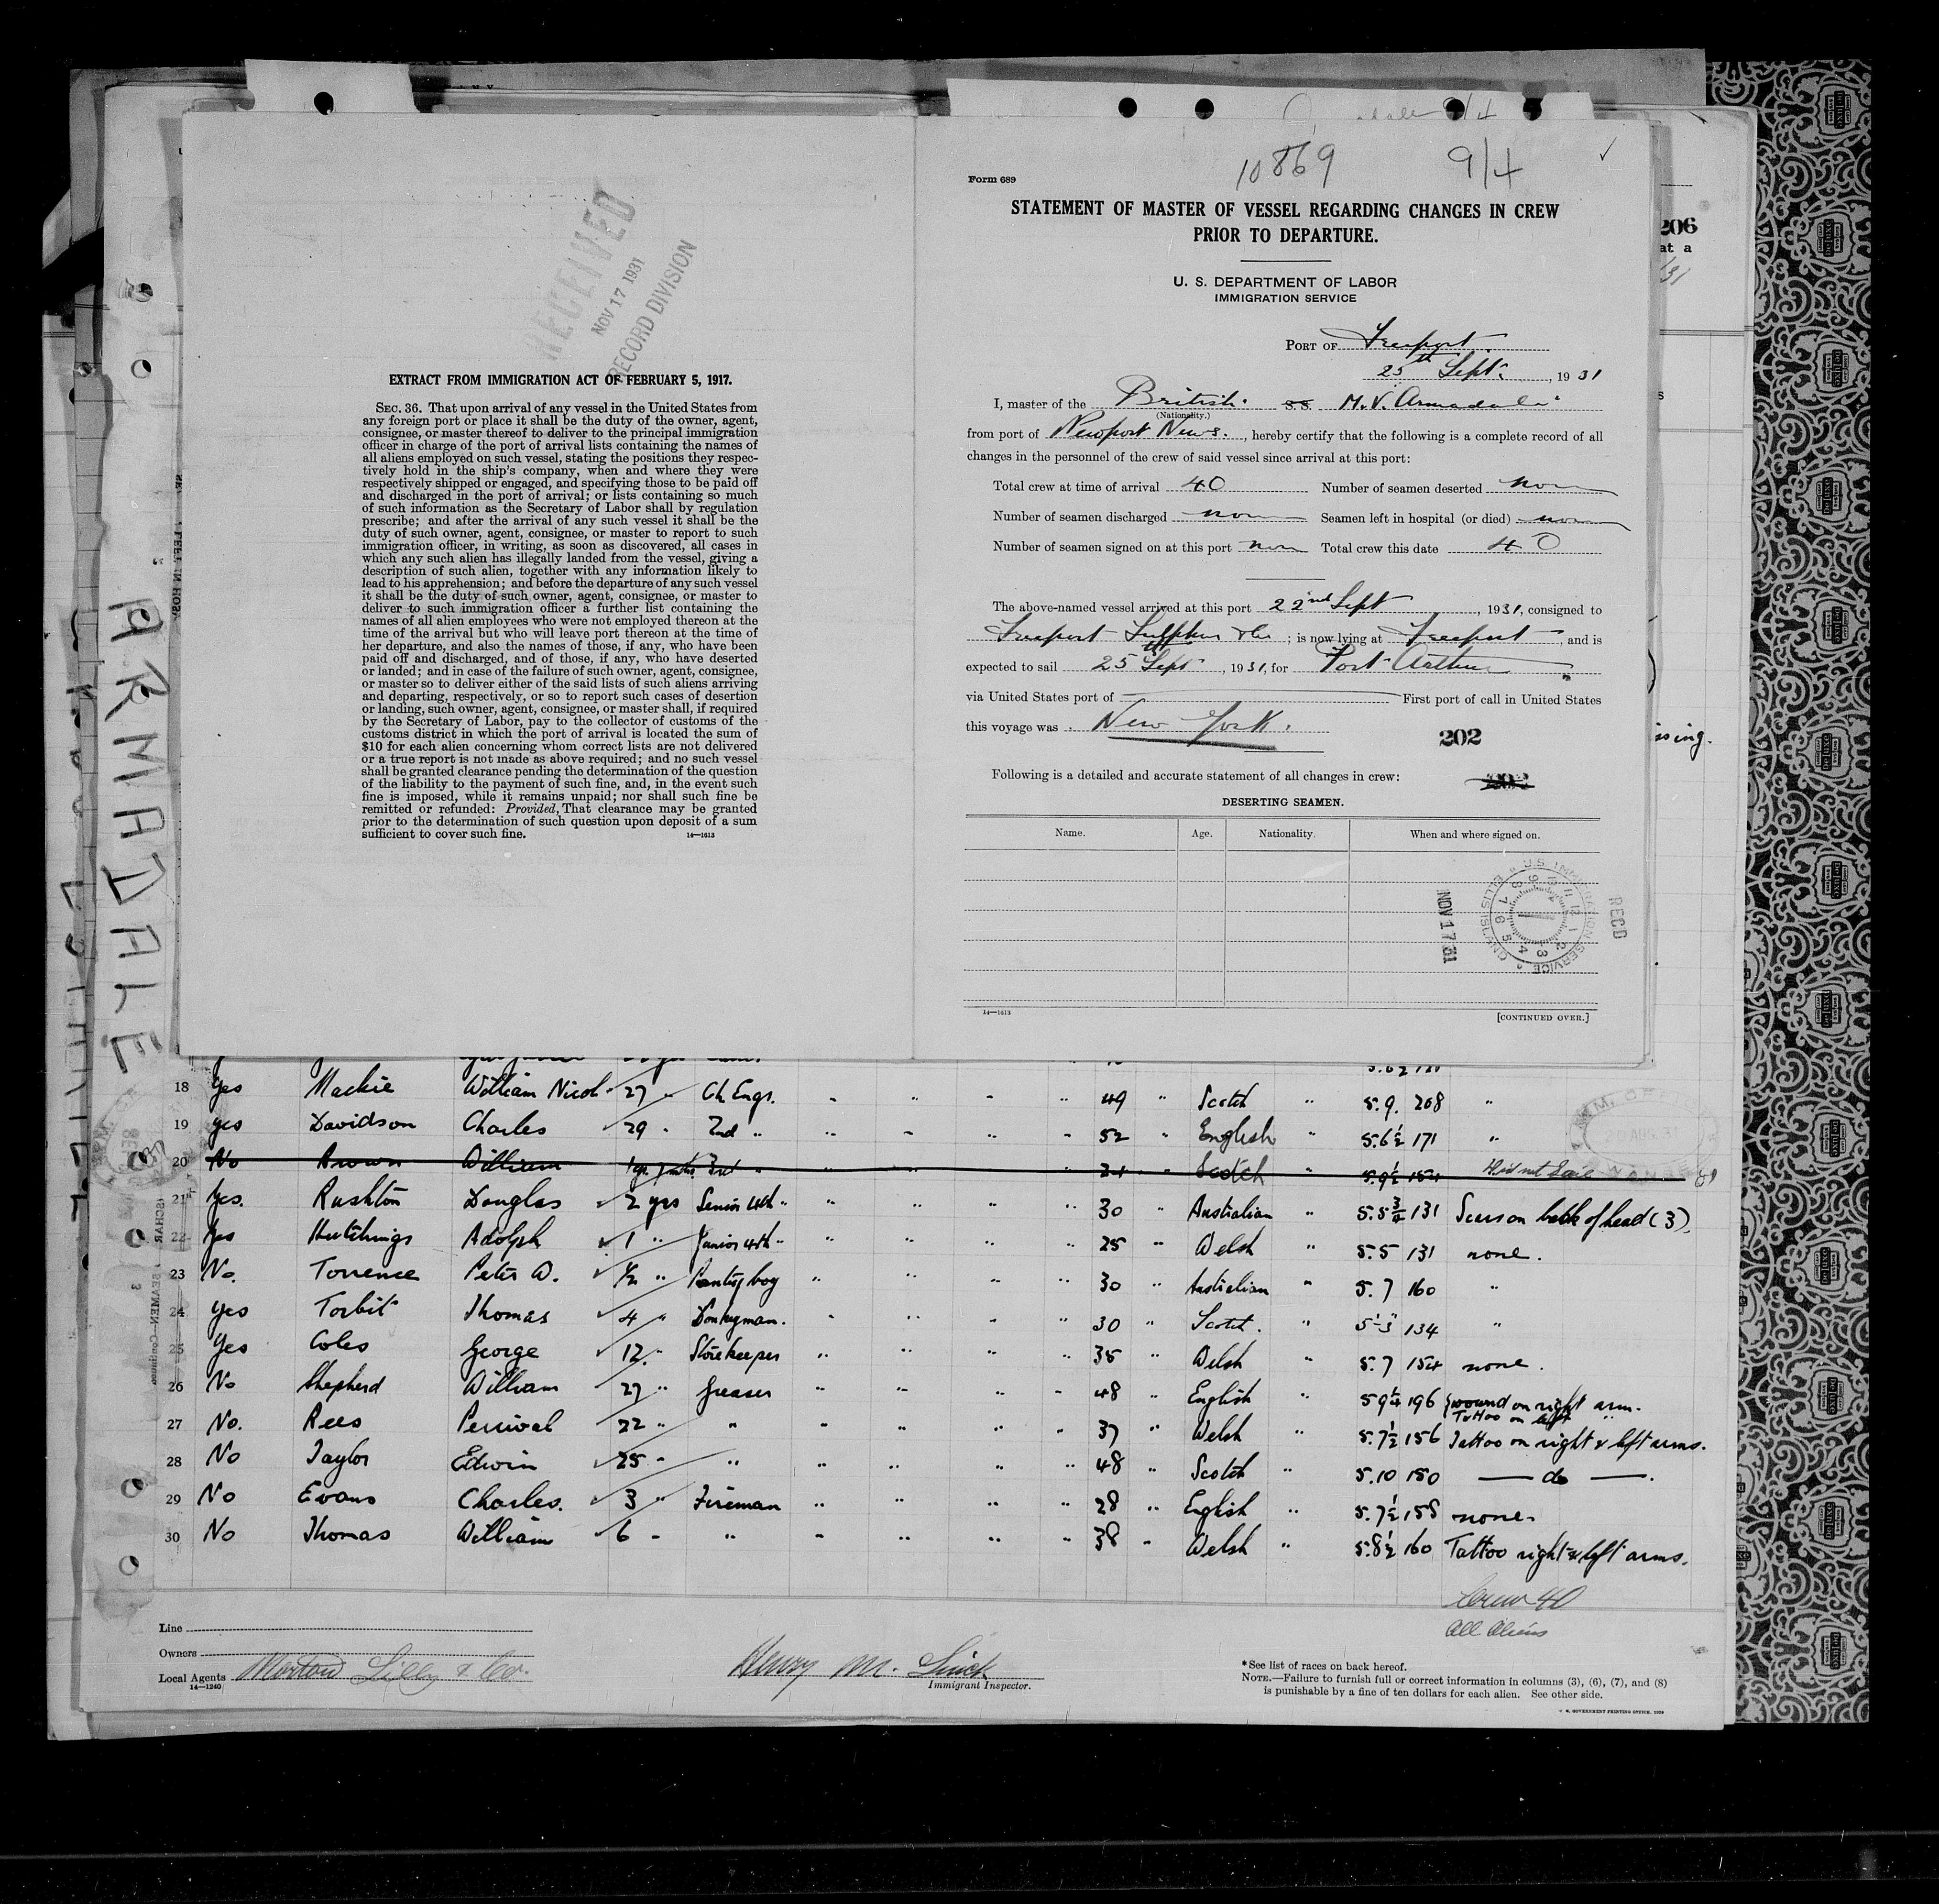 10869 9/4 ✓
RECEIVED
NOV 17 1931
RECORD DIVISION
EXTRACT FROM IMMIGRATION ACT OF FEBRUARY 5, 1917.
SEC. 36. That upon arrival of any vessel in the United States from
any foreign port or place it shall be the duty of the owner, agent,
consignee, or master thereof to deliver to the principal immigration
officer in charge of the port of arrival lists containing the names of
all aliens employed on such vessel, stating the positions they respec-
tively hold in the ship's company, when and where they were
respectively shipped or engaged, and specifying those to be paid off
and discharged in the port of arrival; or lists containing so much
of such information as the Secretary of Labor shall by regulation
prescribe; and after the arrival of any such vessel it shall be the
duty of such owner, agent, consignee, or master to report to such
immigration officer, in writing, as soon as discovered, all cases in
which any such alien has illegally landed from the vessel, giving a
description of such alien, together with any information likely to
lead to his apprehension; and before the departure of any such vessel
it shall be the duty of such owner, agent, consignee, or master to
deliver to such immigration officer a further list containing the
names of all alien employees who were not employed thereon at the
time of the arrival but who will leave port thereon at the time of
her departure, and also the names of those, if any, who have been
paid off and discharged, and of those, if any, who have deserted
or landed; and in case of the failure of such owner, agent, consignee,
or master so to deliver either of the said lists of such aliens arriving
and departing, respectively, or so to report such cases of desertion
or landing, such owner, agent, consignee, or master shall, if required
by the Secretary of Labor, pay to the collector of customs of the
customs district in which the port of arrival is located the sum of
$10 for each alien concerning whom correct lists are not delivered
or a true report is not made as above required; and no such vessel
shall be granted clearance pending the determination of the question
of the liability to the payment of such fine, and, in the event such
fine is imposed, while it remains unpaid; nor shall such fine be
remitted or refunded: Provided, That clearance may be granted
prior to the determination of such question upon deposit of a sum
sufficient to cover such fine. 14—1613
Form 689
STATEMENT OF MASTER OF VESSEL REGARDING CHANGES IN CREW
PRIOR TO DEPARTURE.
U. S. DEPARTMENT OF LABOR
IMMIGRATION SERVICE
PORT OF Freeport
25th Sept. , 1931
I, master of the British S.S. M.V. Armadale
(Nationality.)
from port of Newport News., hereby certify that the following is a complete record of all
changes in the personnel of the crew of said vessel since arrival at this port:
Total crew at time of arrival 40 Number of seamen deserted none
Number of seamen discharged none Seamen left in hospital (or died) none
Number of seamen signed on at this port none Total crew this date 40
The above-named vessel arrived at this port 22nd Sept , 1931, consigned to
Freeport Sulphur & Co ; is now lying at Freeport , and is
expected to sail 25th Sept , 1931, for Port Arthur
via United States port of First port of call in United States
this voyage was New York.
202
Following is a detailed and accurate statement of all changes in crew:
DESERTING SEAMEN.
Name. Age. Nationality. When and where signed on.
U.S. IMMIGRATION SERVICE ELLIS ISLAND
RECD NOV 17 31
14—1613 [CONTINUED OVER.]
206
at a
ARMADALE
18 Yes Mackie William Nicol 27 " Ch. Engr. " " " " 49 " Scotch " 5.9. 208 "
19 yes Davidson Charles 29 " 2nd " " " " " 52 " English " 5.6½ 171 "
20 No Brown William 3rd " Scotch " 5.9½ 154 Did not Sail
21 Yes. Rushton Douglas 2 yrs Senior 4th " " " " " 30 " Australian " 5.5¾ 131 Scars on back of head (3).
22 Yes Hutchings Adolph 1 " Junior 4th " " " " " 25 " Welsh " 5.5 131 none.
23 No. Torrence Peter A. ½ " Pantry boy " " " " 30 " Australian " 5.7 160 "
24 Yes Torbit Thomas 4 " Donkeyman. " " " " 30 " Scotch. " 5'-3" 134 "
25 Yes Coles George 12 " Storekeeper " " " " 35 " Welsh " 5.7 154 none.
26 No Shepherd William 27 " Greaser " " " " 48 " English " 5 9¼ 196 wound on right arm.
Tattoo on left "
27 No. Rees Percival 22 " " " " " " 37 " Welsh " 5.7½ 156 Tattoo on right & left arms.
28 No Taylor Edwin 25 " " " " " " 48 " Scotch " 5.10 150 — do —.
29 No Evans Charles. 3 " Fireman " " " " 28 " English " 5.7½ 158 none.
30 No Thomas William 6 " " " " " " 38 " Welsh " 5.8½ 160 Tattoo right & left arms.
Crew 40
All Aliens
Line
Owners
Local Agents Morton Lilly & Co.
14—1240
Henry M.
Immigrant Inspector.
*See list of races on back hereof.
NOTE.—Failure to furnish full or correct information in columns (3), (6), (7), and (8)
is punishable by a fine of ten dollars for each alien. See other side.
U. S. GOVERNMENT PRINTING OFFICE. 1929